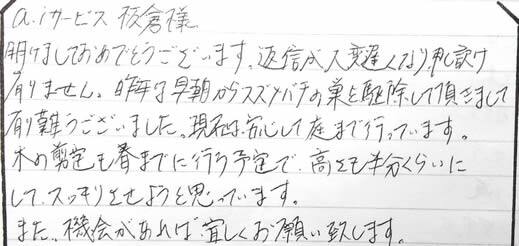 a.iサービス 板倉様
明けましておめでとうございます。返信が大変遅くなり申し訳
有りません。昨年は早朝からスズメバチの巣を駆除して頂きまして
有難うございました。現在は安心して庭まで行っています。
木の剪定も春までに行う予定で、高さも半分くらいに
して、スッキリさせようと思っています。
また、機会があれば宜しくお願い致します。